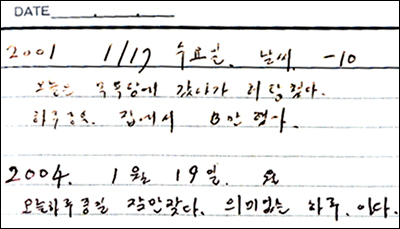 DATE
2001 1/17 수요일. 날씨. -10
오늘은 목동에 갔다가 허탕쳤다.
하루종일. 집에서 잠만 잤다.
2004. 1월 19일. 요
오늘하루종일 잠만잤다. 의미없는 하루. 이다.